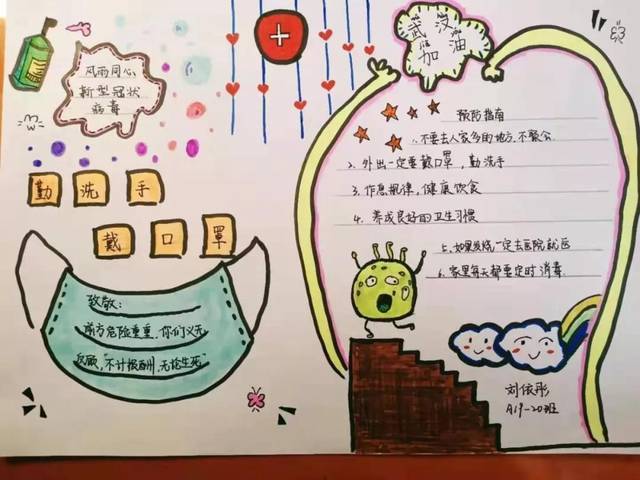 风雨同心
新型冠状
病毒
勤洗手
戴口罩
致敬:
前方危险重重,你们义无
反顾,"不计报酬,无论生死"
武汉
加油
预防指南
1.不要去人家多的地方,不聚会.
2.外出一定要戴口罩,勤洗手
3.作息规律,健康饮食
4.养成良好的卫生习惯
5.如果发烧一定去医院就医
6.家里每天都要定时消毒.
刘依彤
A19-20班